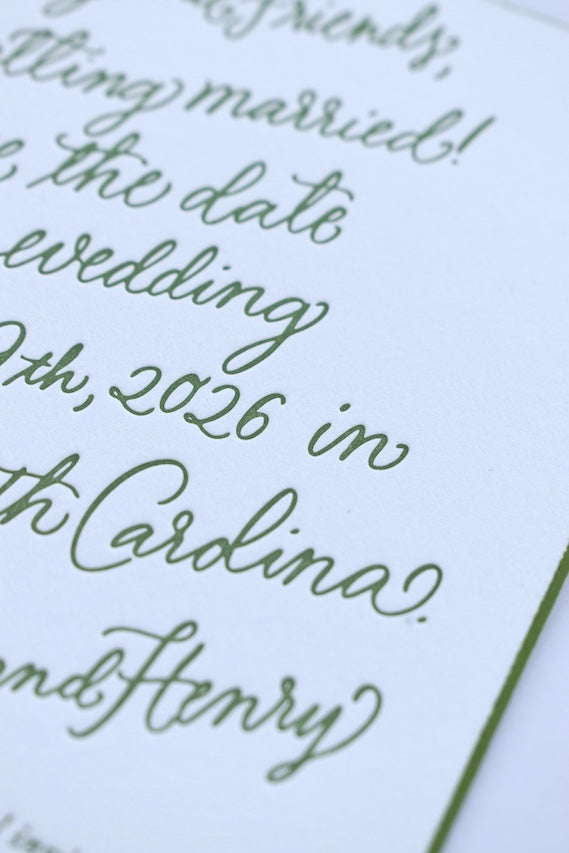 & Friends,
married!
the date
wedding
2026 in
Carolina.
and Henry